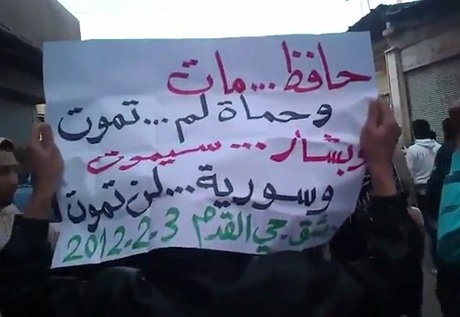 حافظ...مات
وحماة لم...تموت
وبشار...سيموت
وسورية...لن تموت
دمشق-حي القدم 2012-2-3